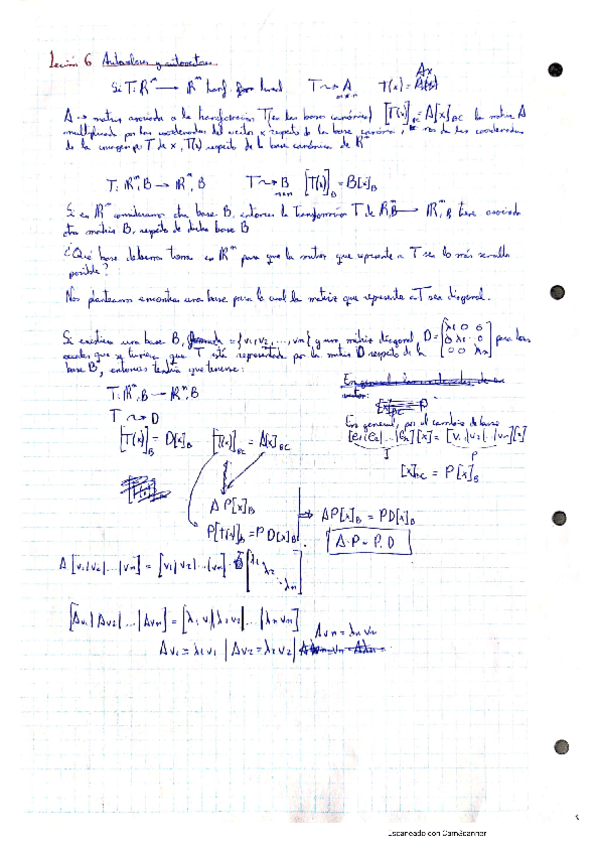 Lección 6 Autovalores y autovectores
Si T: Rⁿ → Rⁿ transf. lineal T ⇝ A n×n T(x) = A(x) Ax
A → matriz asociada a la transformación T (en las bases canónicas) [T(x)]BC = A[x]BC la matriz A
multiplicada por las coordenadas del vector x respecto de la base canónica, nos da las coordenadas
de la imagen por T de x, T(x) respecto de la base canónica de Rⁿ
T: Rⁿ, B → Rⁿ, B T ⇝ B n×n [T(x)]B = B[x]B
Si en Rⁿ consideramos otra base B, entonces la transformación T de Rⁿ,B → Rⁿ,B tiene asociada
otra matriz B, respecto de dicha base B
¿Qué base debemos tomar en Rⁿ para que la matriz que represente a T sea lo más sencilla
posible?
Nos planteamos encontrar una base para la cual la matriz que represente a T sea diagonal.
Si existiera una base B, = {v1, v2, ..., vn} y una matriz diagonal D = [λ1 0 0 / 0 λ2 0 / 0 0 λn] para las
cuales que se tuviera que T está representada por la matriz D respecto de la
base B, entonces tendría que tenerse:
T: Rⁿ, B → Rⁿ, B
T ⇝ D
[T(x)]B = D[x]B [T(x)]BC = A[x]BC
En general, por el cambio de base
[e1|e2|...|en][x] = [v1|v2|...|vn][x]
I P
[x]BC = P[x]B
A P[x]B
P[T(x)]B = P D[x]B
⇒ AP[x]B = PD[x]B
A·P = P·D
A [v1|v2|...|vn] = [v1|v2|...|vn] · [λ1 λ2 ... λn]
[Av1|Av2|...|Avn] = [λ1v1|λ2v2|...|λnvn]
Av1 = λ1v1 | Av2 = λ2v2 | Avn = λnvn
Escaneado con CamScanner